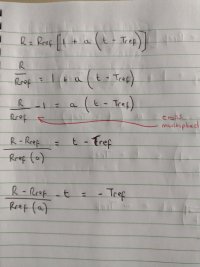 R = Rref [ 1 + a ( t - Tref ) ]
R / Rref = 1 + a ( t - Tref )
R / Rref - 1 = a ( t - Tref )
R - Rref / Rref (a) = t - Tref
R - Rref / Rref (a) - t = - Tref